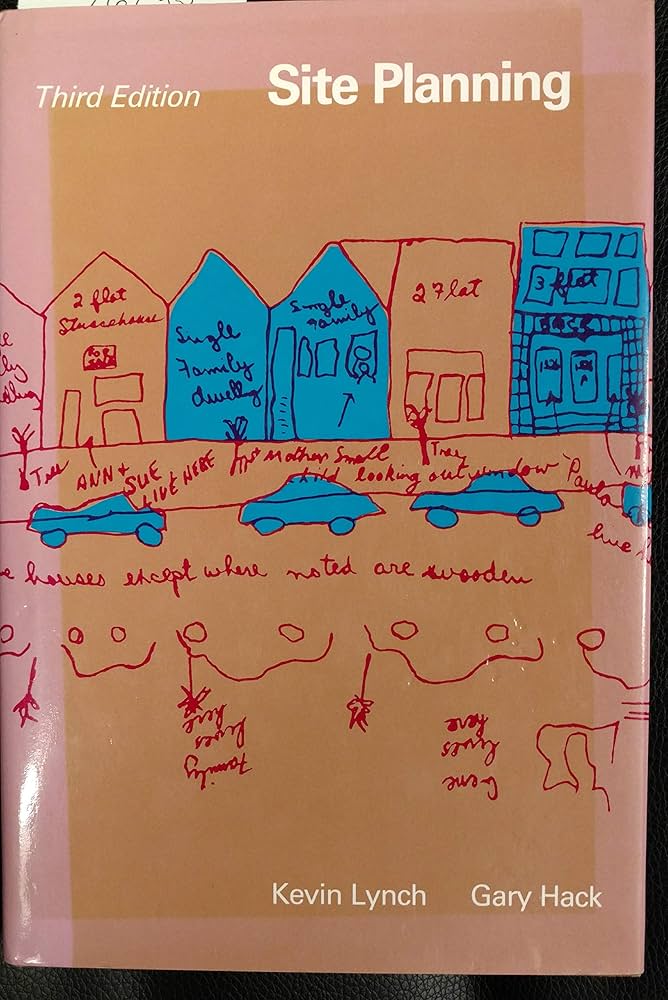 Third Edition
Site Planning
2 flat
Stucco house
FOR SALE
Single
Family
dwelling
Single
Family
2 Flat
3 flat
Tree
ANN +
SUE
LIVE HERE
Mother Small
child looking out window
Tray
Paula
live
houses except where noted are wooden
Family
lives
here
Gene
lives
here
Kevin Lynch
Gary Hack